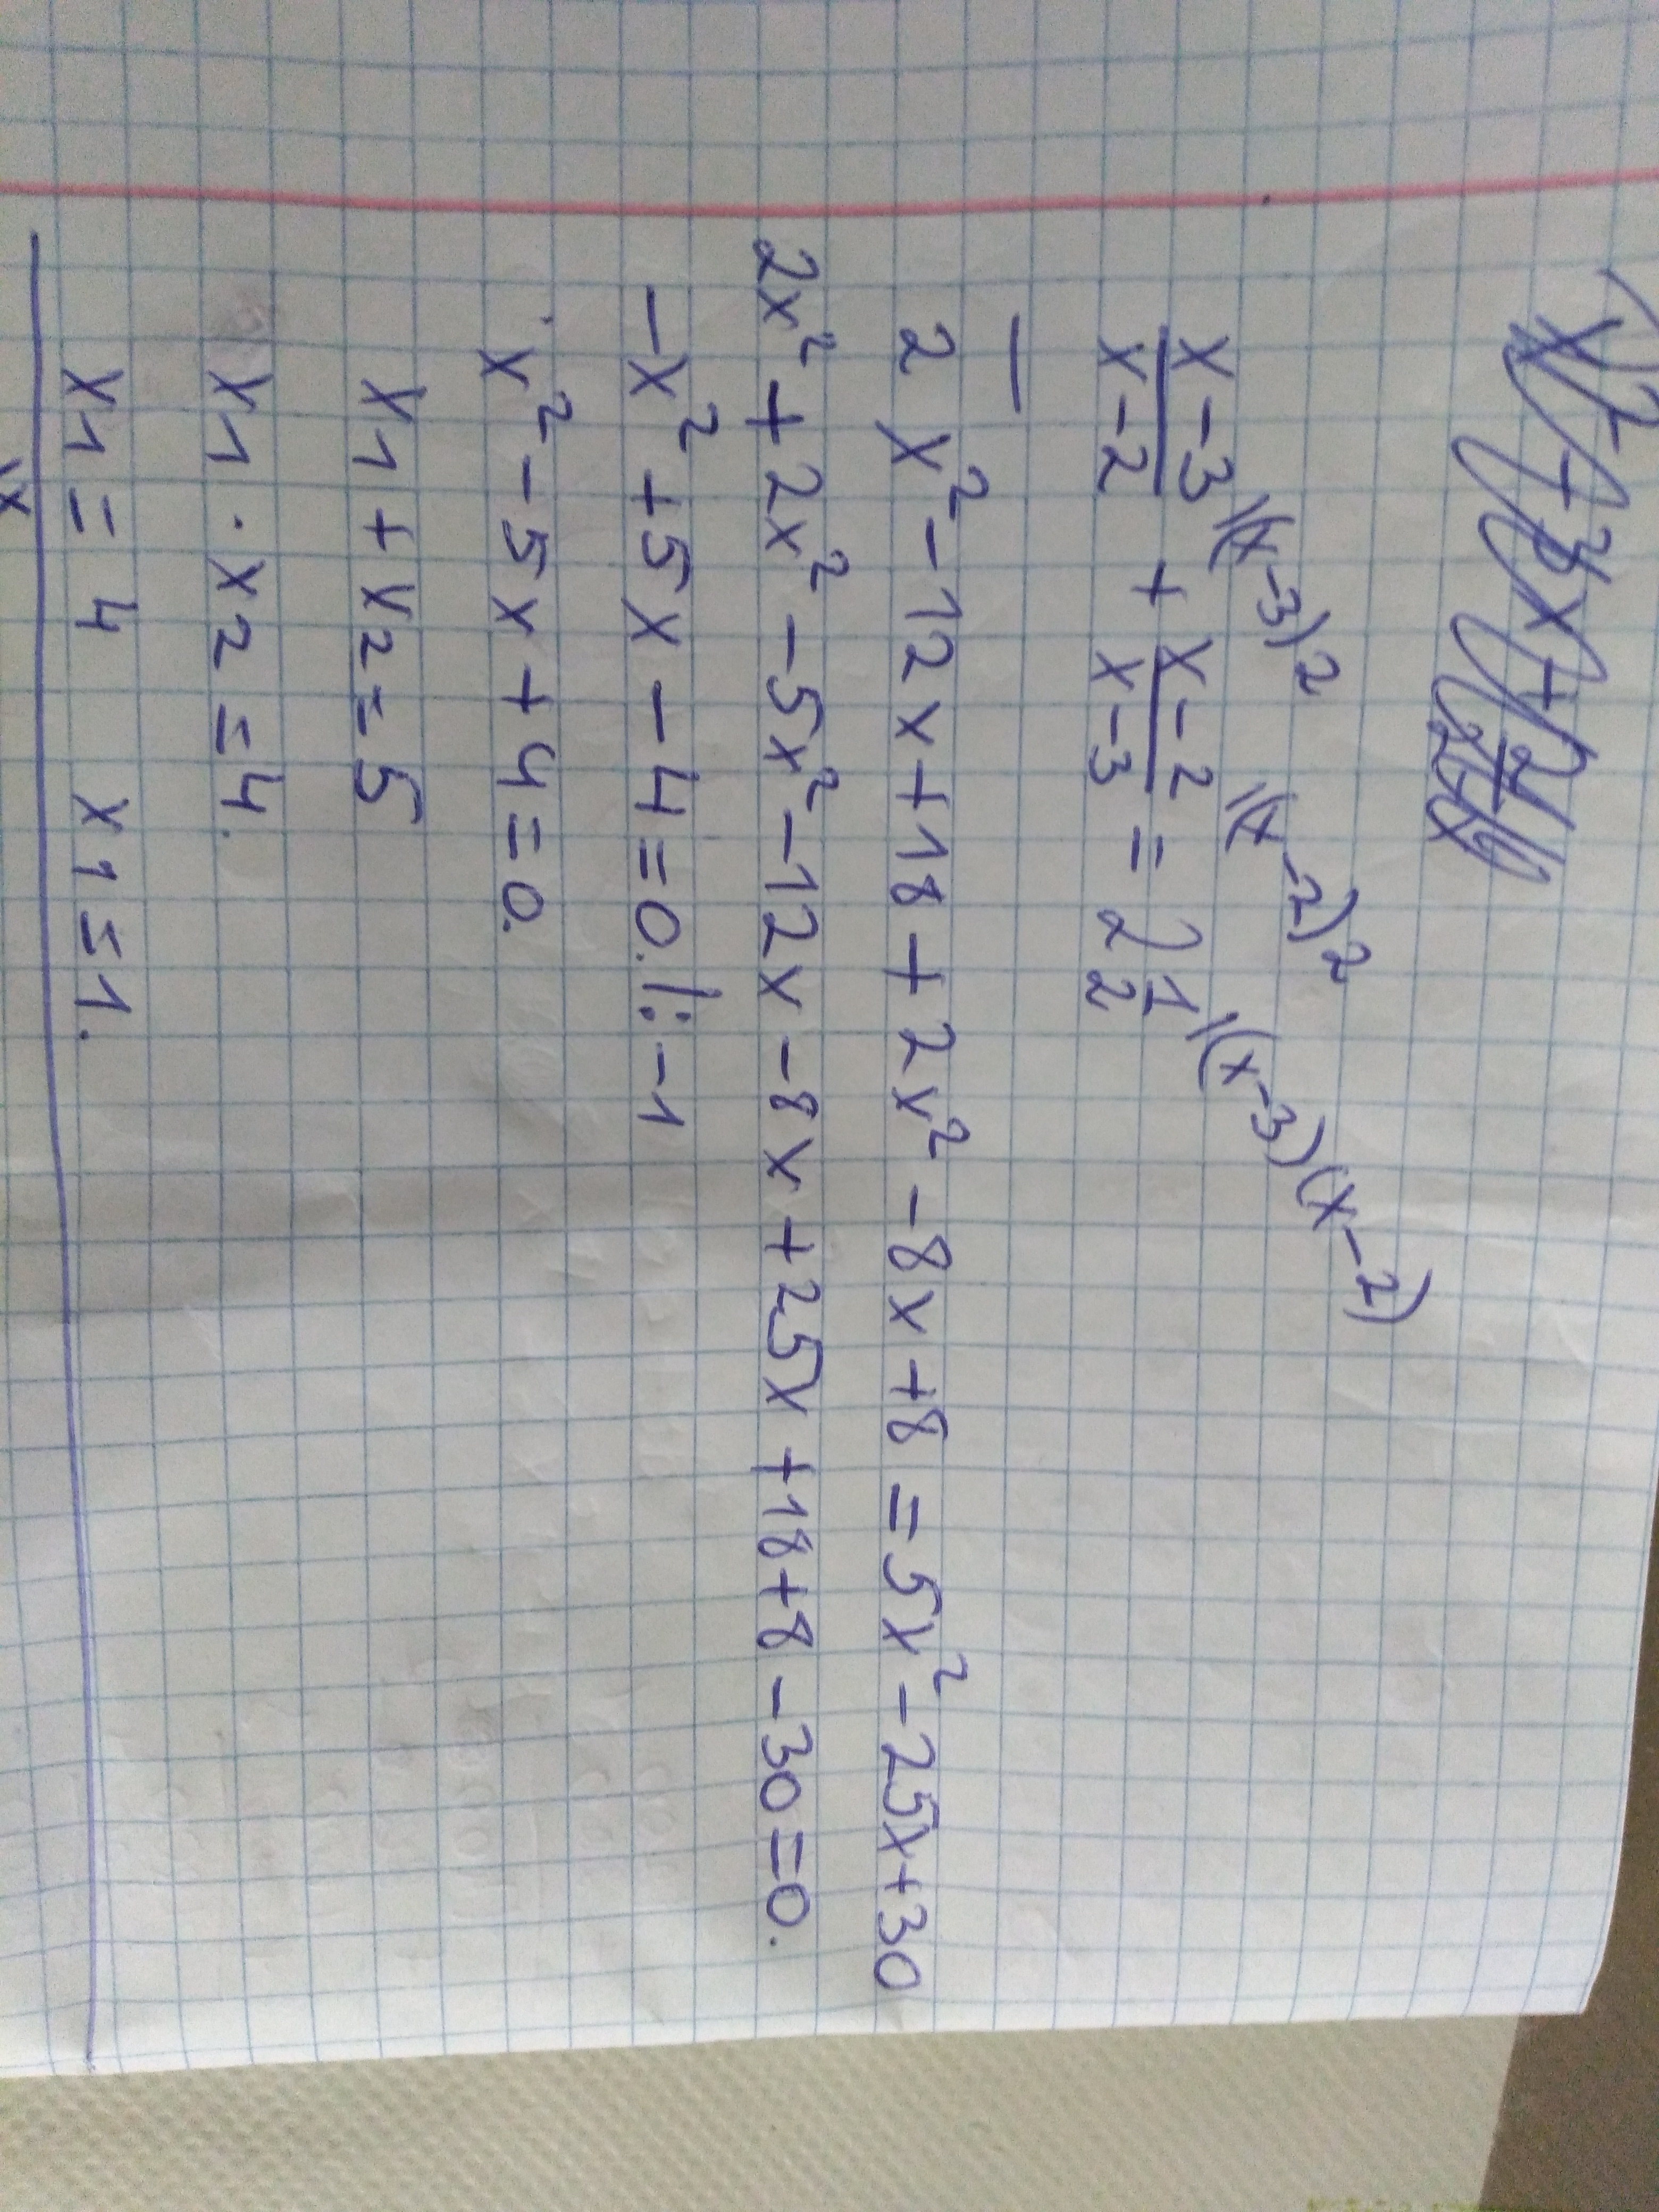 x-3/x-2 \(x-3)2 + x-2/x-3 \(x-2)2 = 2 1/2 \(x-3)(x-2)
2x²-12x+18+2x²-8x+8=5x²-25x+30
2x²+2x²-5x²-12x-8x+25x+18+8-30=0.
-x²+5x-4=0. |:-1
x²-5x+4=0.
x1+x2=5
x1·x2=4.
x1=4 x1=1.